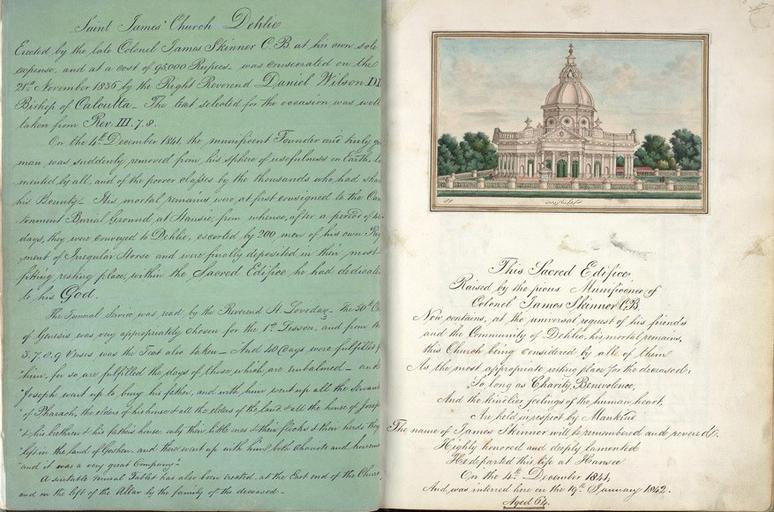 Saint James' Church Dehlie
Erected by the late Colonel James Skinner C.B. at his own sole
expense, and at a cost of 95,000 Rupees was consecrated on the
21st November 1836 by the Right Reverend Daniel Wilson
Bishop of Calcutta. The text selected for the occasion was well
taken from Rev. III. 7. 8.
On the 4th December 1841, the munificent Founder and truly
man was suddenly removed from his sphere of usefulness on Earth,
mented by all, and of the poorer classes by the thousands who had
his Bounty. His mortal remains were at first consigned to the Can
tonment Burial Ground at Hansie, from whence, after a period of
days, they were conveyed to Dehlie, escorted by 200 men of his own
ment of Irregular Horse and were finally deposited in their most
fitting resting place, within the Sacred Edifice he had dedicate
to his God.
The Funeral Service was read by the Reverend The 50th
of Genesis was very appropriately chosen for the 1st Lesson, and from
3. 7. 8. 9 Verses was the Text also taken – And 40 Days were fulfilled
him, for so are fulfilled the days of those which are embalmed – and
Joseph went up to bury his father, and with him went up all the Servants
of Pharaoh, the elders of his house & all the elders of the land & all the house of Joseph
& his brethren & his fathers house: only their little ones & their flocks & their herds they
left in the land of Goshen. and there went up with him both chariots and horsemen
and it was a very great Company.
A suitable mural Tablet has also been erected, at the East end of the
and on the left of the Altar by the family of the deceased.
This Sacred Edifice,
Raised by the pious Munificence of
Colonel James Skinner CB.
Now contains, at the universal request of his friends
and the Community of Dehlie, his mortal remains,
this Church being considered by all of them
As the most appropriate resting place for the deceased:
So long as Charity, Benevolence,
And the kindlier feelings of the human heart,
Are held in respect by Mankind
The name of James Skinner will be remembered and revered.
Highly honored and deeply lamented
He departed this life at Hansee
On the 4th December 1841,
And was interred here on the 19th January 1842.
Aged 64.